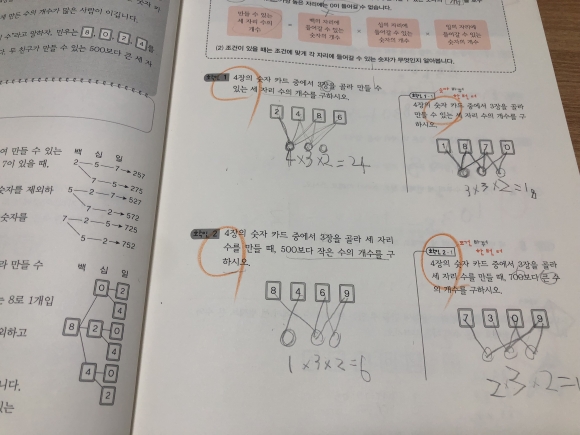 세 만든 수의 개수가 많은 사람이 이깁니다.
8, 0, 2, 4
두 친구가 만들 수 있는 500보다 큰 세 자
만들 수 있는 세 자리 수의 개수
=
백의 자리에 들어갈 수 있는 숫자의 개수
×
십의 자리에 들어갈 수 있는 숫자의 개수
×
일의 자리에 들어갈 수 있는 숫자의 개수
(2) 조건이 있을 때는 조건에 맞게 각 자리에 들어갈 수 있는 숫자가 무엇인지 알아봅니다.
여 만들 수 있는
7이 있을 때,
숫자를 제외하
숫자를
라 만들 수
는 8로 1개입
외하고
니다.
있는
백 십 일
2 5 7 → 257
7 5 → 275
5 2 7 → 527
7 2 → 572
7 2 5 → 725
5 2 → 752
백 십 일
8
0 2
4
2 0
4
4 0
2
4장의 숫자 카드 중에서 3장을 골라 만들 수
있는 세 자리 수의 개수를 구하시오.
2 4 8 6
4×3×2=24
4장의 숫자 카드 중에서 3장을 골라
만들 수 있는 세 자리 수의 개수를 구
하시오.
1 8 7 0
3×3×2=18
4장의 숫자 카드 중에서 3장을 골라 세 자리
수를 만들 때, 500보다 작은 수의 개수를 구
하시오.
8 4 6 9
1×3×2=6
4장의 숫자 카드 중에서 3장을 골라
세 자리 수를 만들 때, 700보다 큰 수
의 개수를 구하시오.
7 3 0 9
2×3×2=1